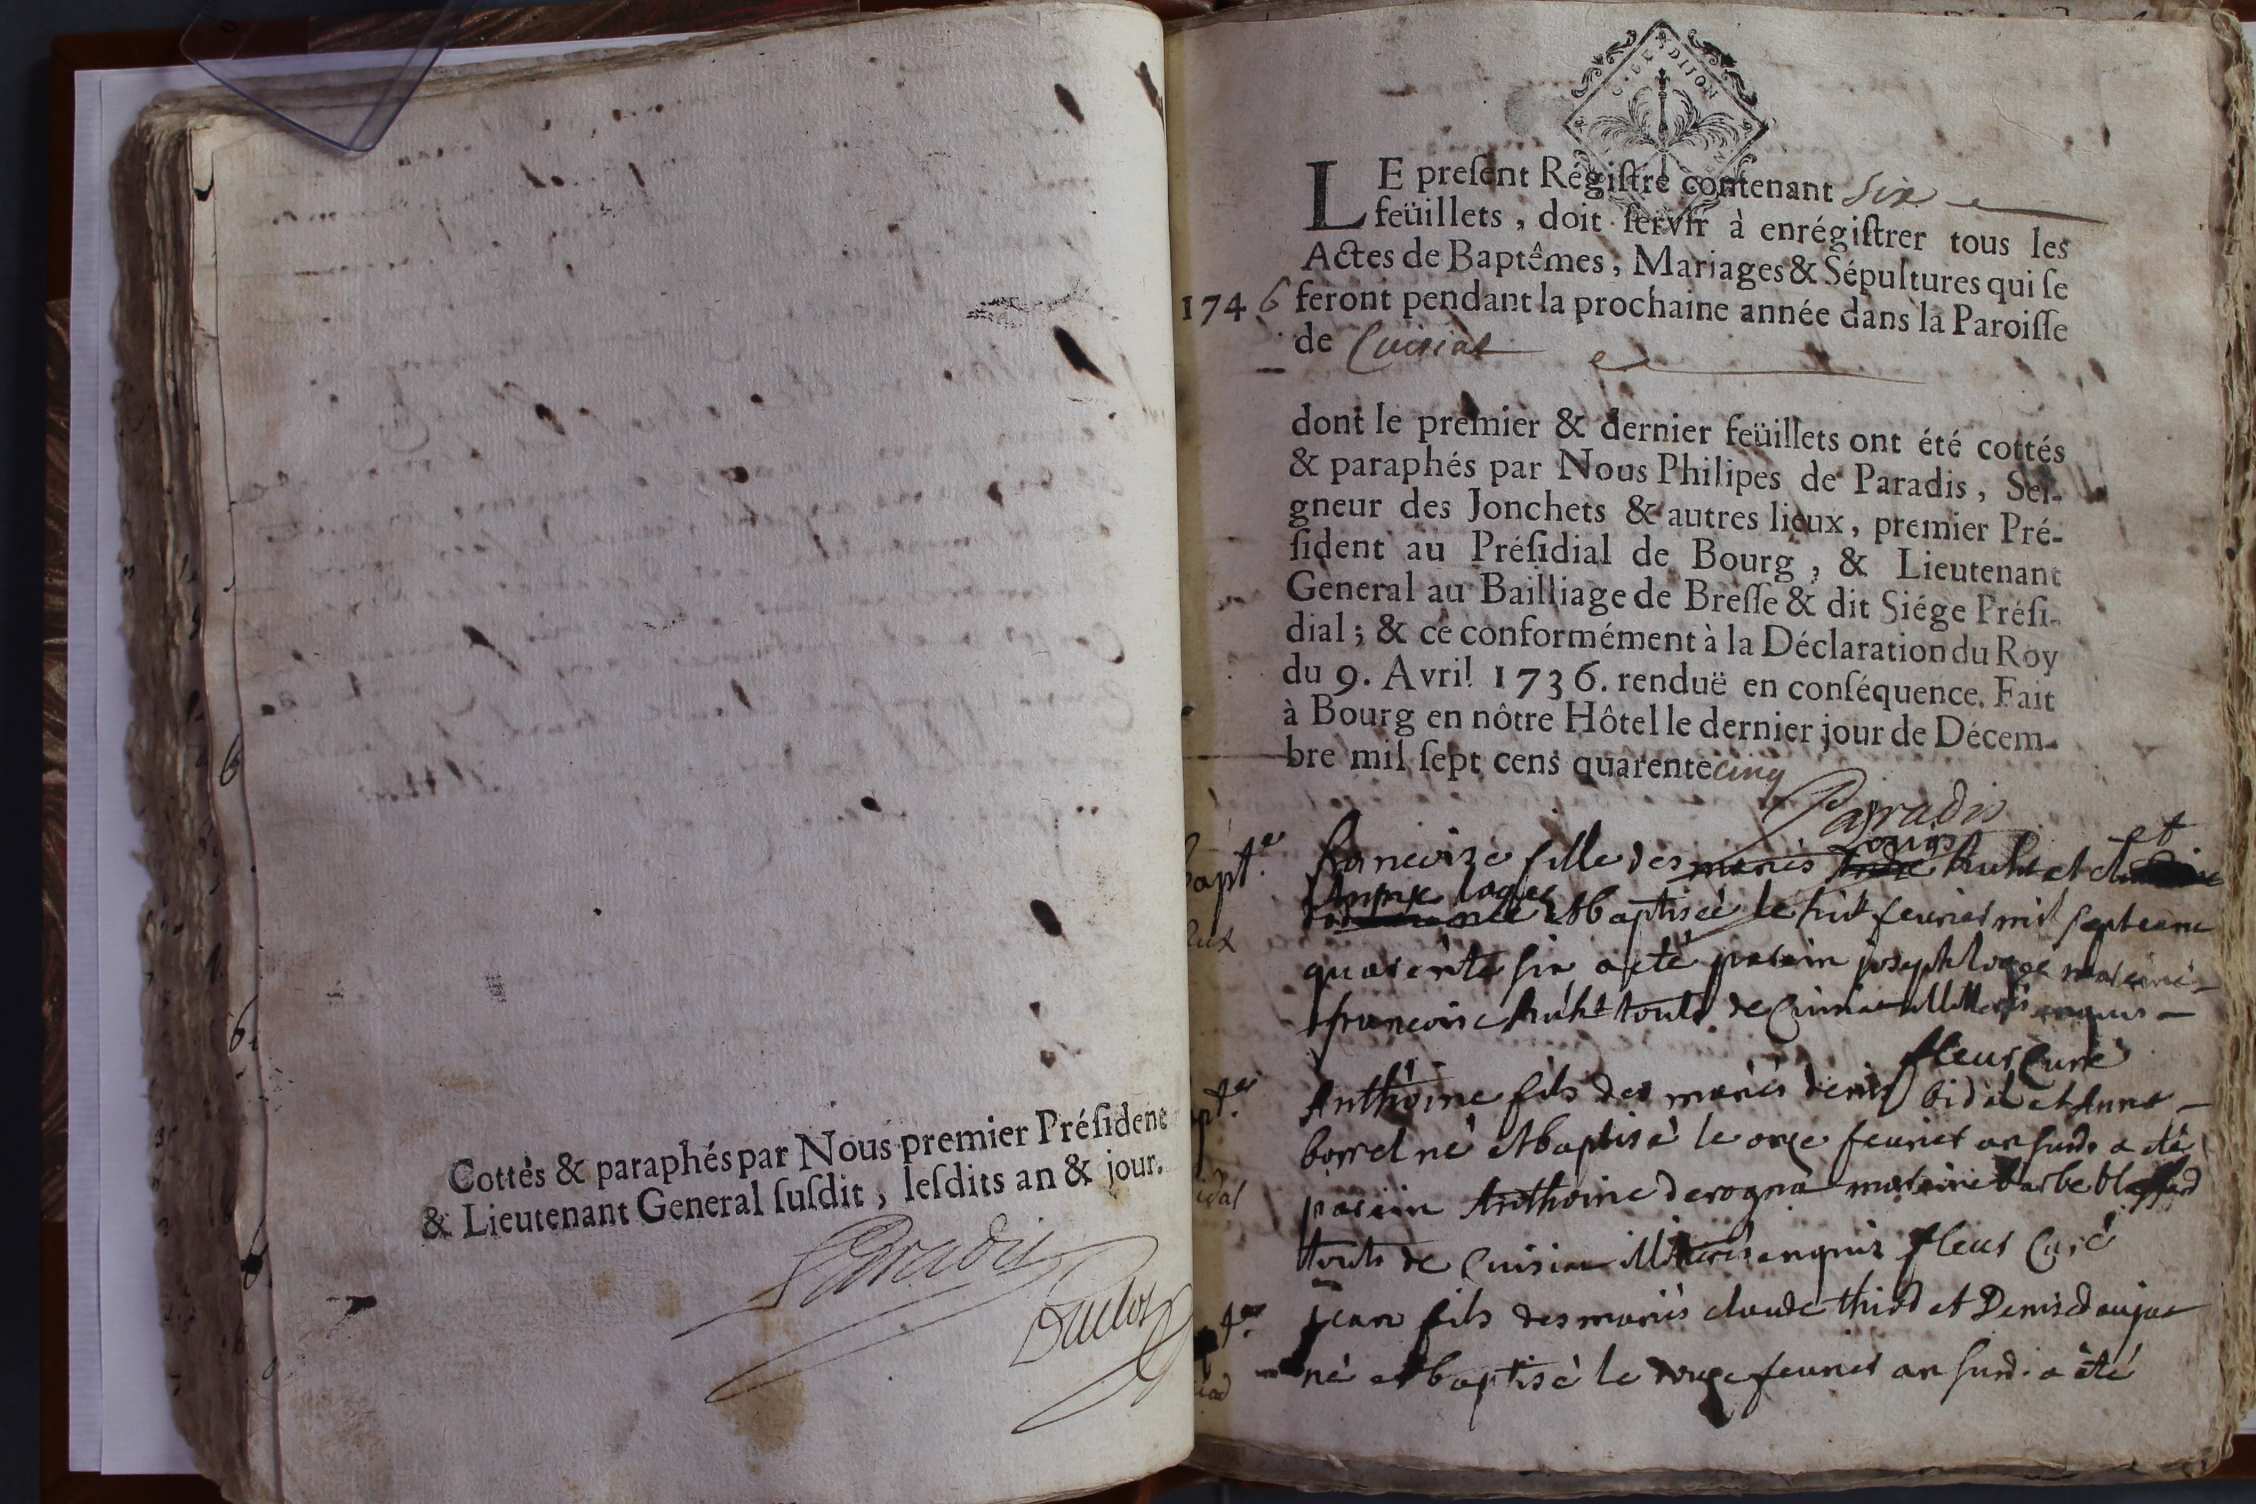 Cottés & paraphés par Nous premier Président
& Lieutenant General ſuſdit, leſdits an & jour.
Paradis
Duclos
G. DE DIJON
LE preſent Régiſtre contenant Six
feüillets, doit ſervir à enrégiſtrer tous les
Actes de Baptêmes, Mariages & Sépultures qui ſe
1746 feront pendant la prochaine année dans la Paroiſſe
de Cuisiat
dont le premier & dernier feüillets ont été cottés
& paraphés par Nous Philipes de Paradis, Sei-
gneur des Jonchets & autres lieux, premier Pré-
ſident au Préſidial de Bourg, & Lieutenant
General au Bailliage de Breſſe & dit Siége Préſi-
dial; & ce conformément à la Déclaration du Roy
du 9. Avril 1736. renduë en conſéquence. Fait
à Bourg en nôtre Hôtel le dernier jour de Décem-
bre mil ſept cens quarente cinq
Paradis
bapt.
francoise fille des mariés et
et baptiseé le huit feurier mil sept cent
quarente six a eté parain joseph maraine
francoise touts de Cuisiat Illiterés enquis
fleur Curé
Anthoine fils des mariés denis bidal et Anne
borrel né et baptisé le onze feurier an susd. a eté
parain Anthoine derogna maraine barbe
touts de Cuisiat Illiterés enquis fleur Curé
jean fils des mariés claude et Denise
né et baptisé le feurier an susd. a été